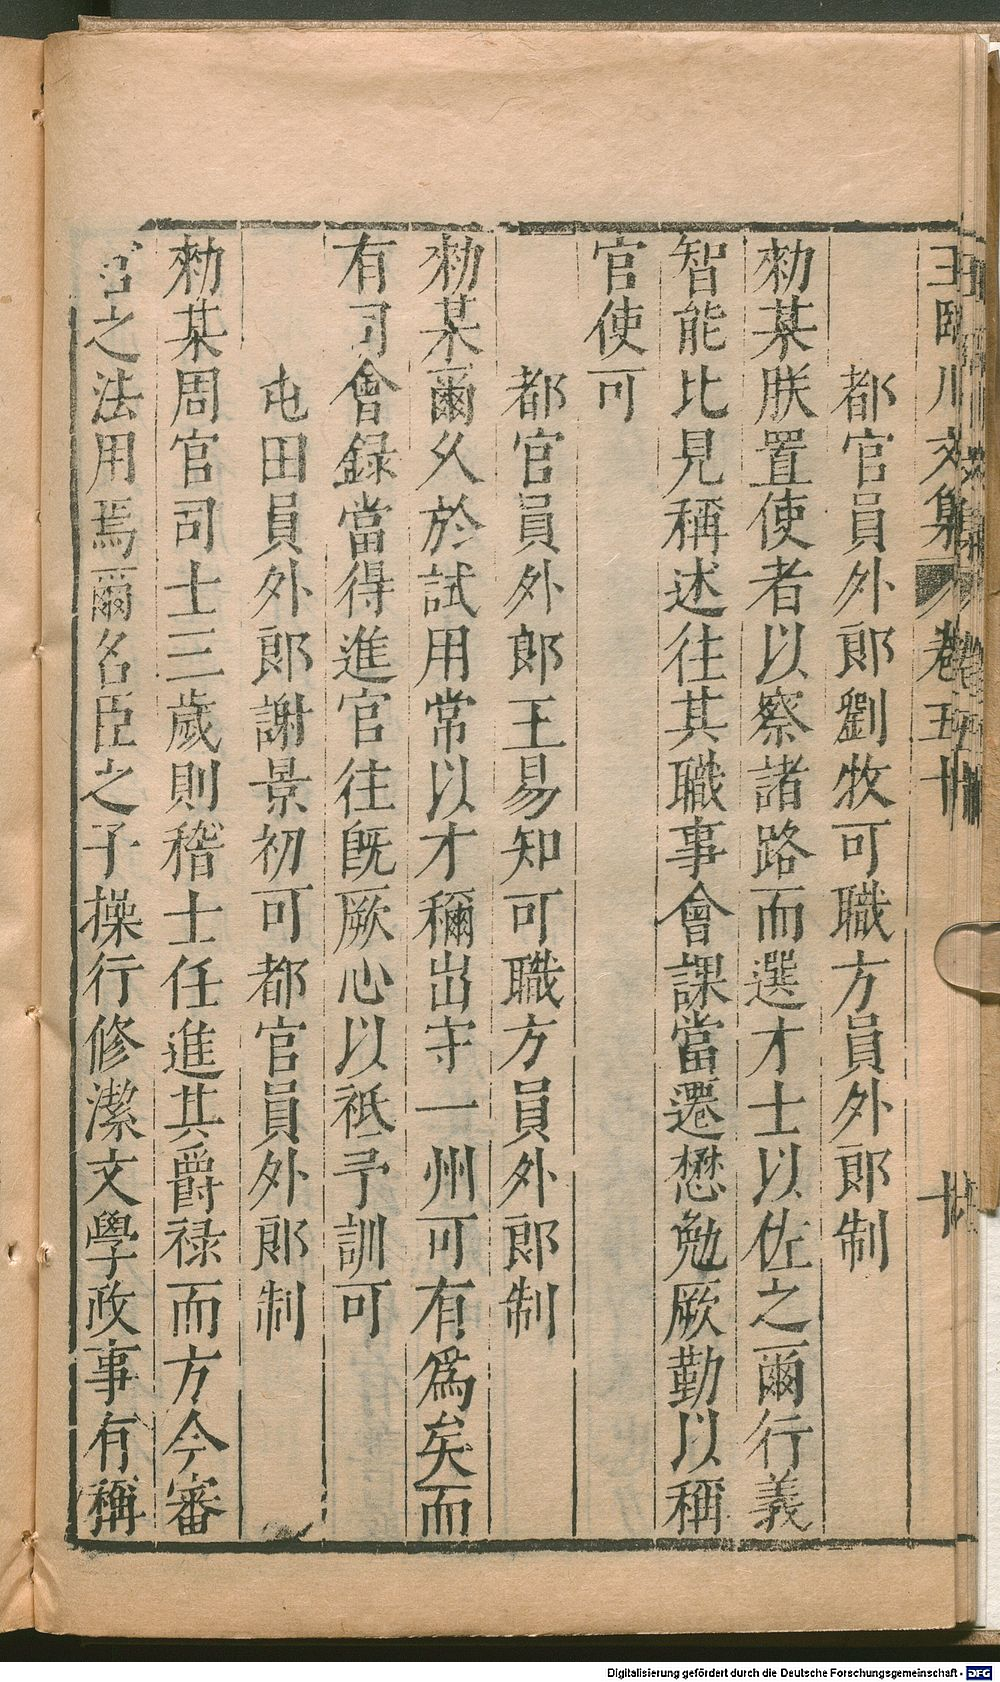 王臨川文集 卷五十 十
都官員外郎劉牧可職方員外郎制
勑某朕置使者以察諸路而選才士以佐之爾行義
智能比見稱述往其職事會課當遷懋勉厥勤以稱
官使可
都官員外郎王易知可職方員外郎制
勑某爾久於試用常以才稱出守一州可有爲矣而
有司會録當得進官往旣厥心以祇予訓可
屯田員外郎謝景初可都官員外郎制
勑某周官司士三歲則稽士任進其爵禄而方今審
官之法用焉爾名臣之子操行修潔文學政事有稱
Digitalisierung gefördert durch die Deutsche Forschungsgemeinschaft - DFG